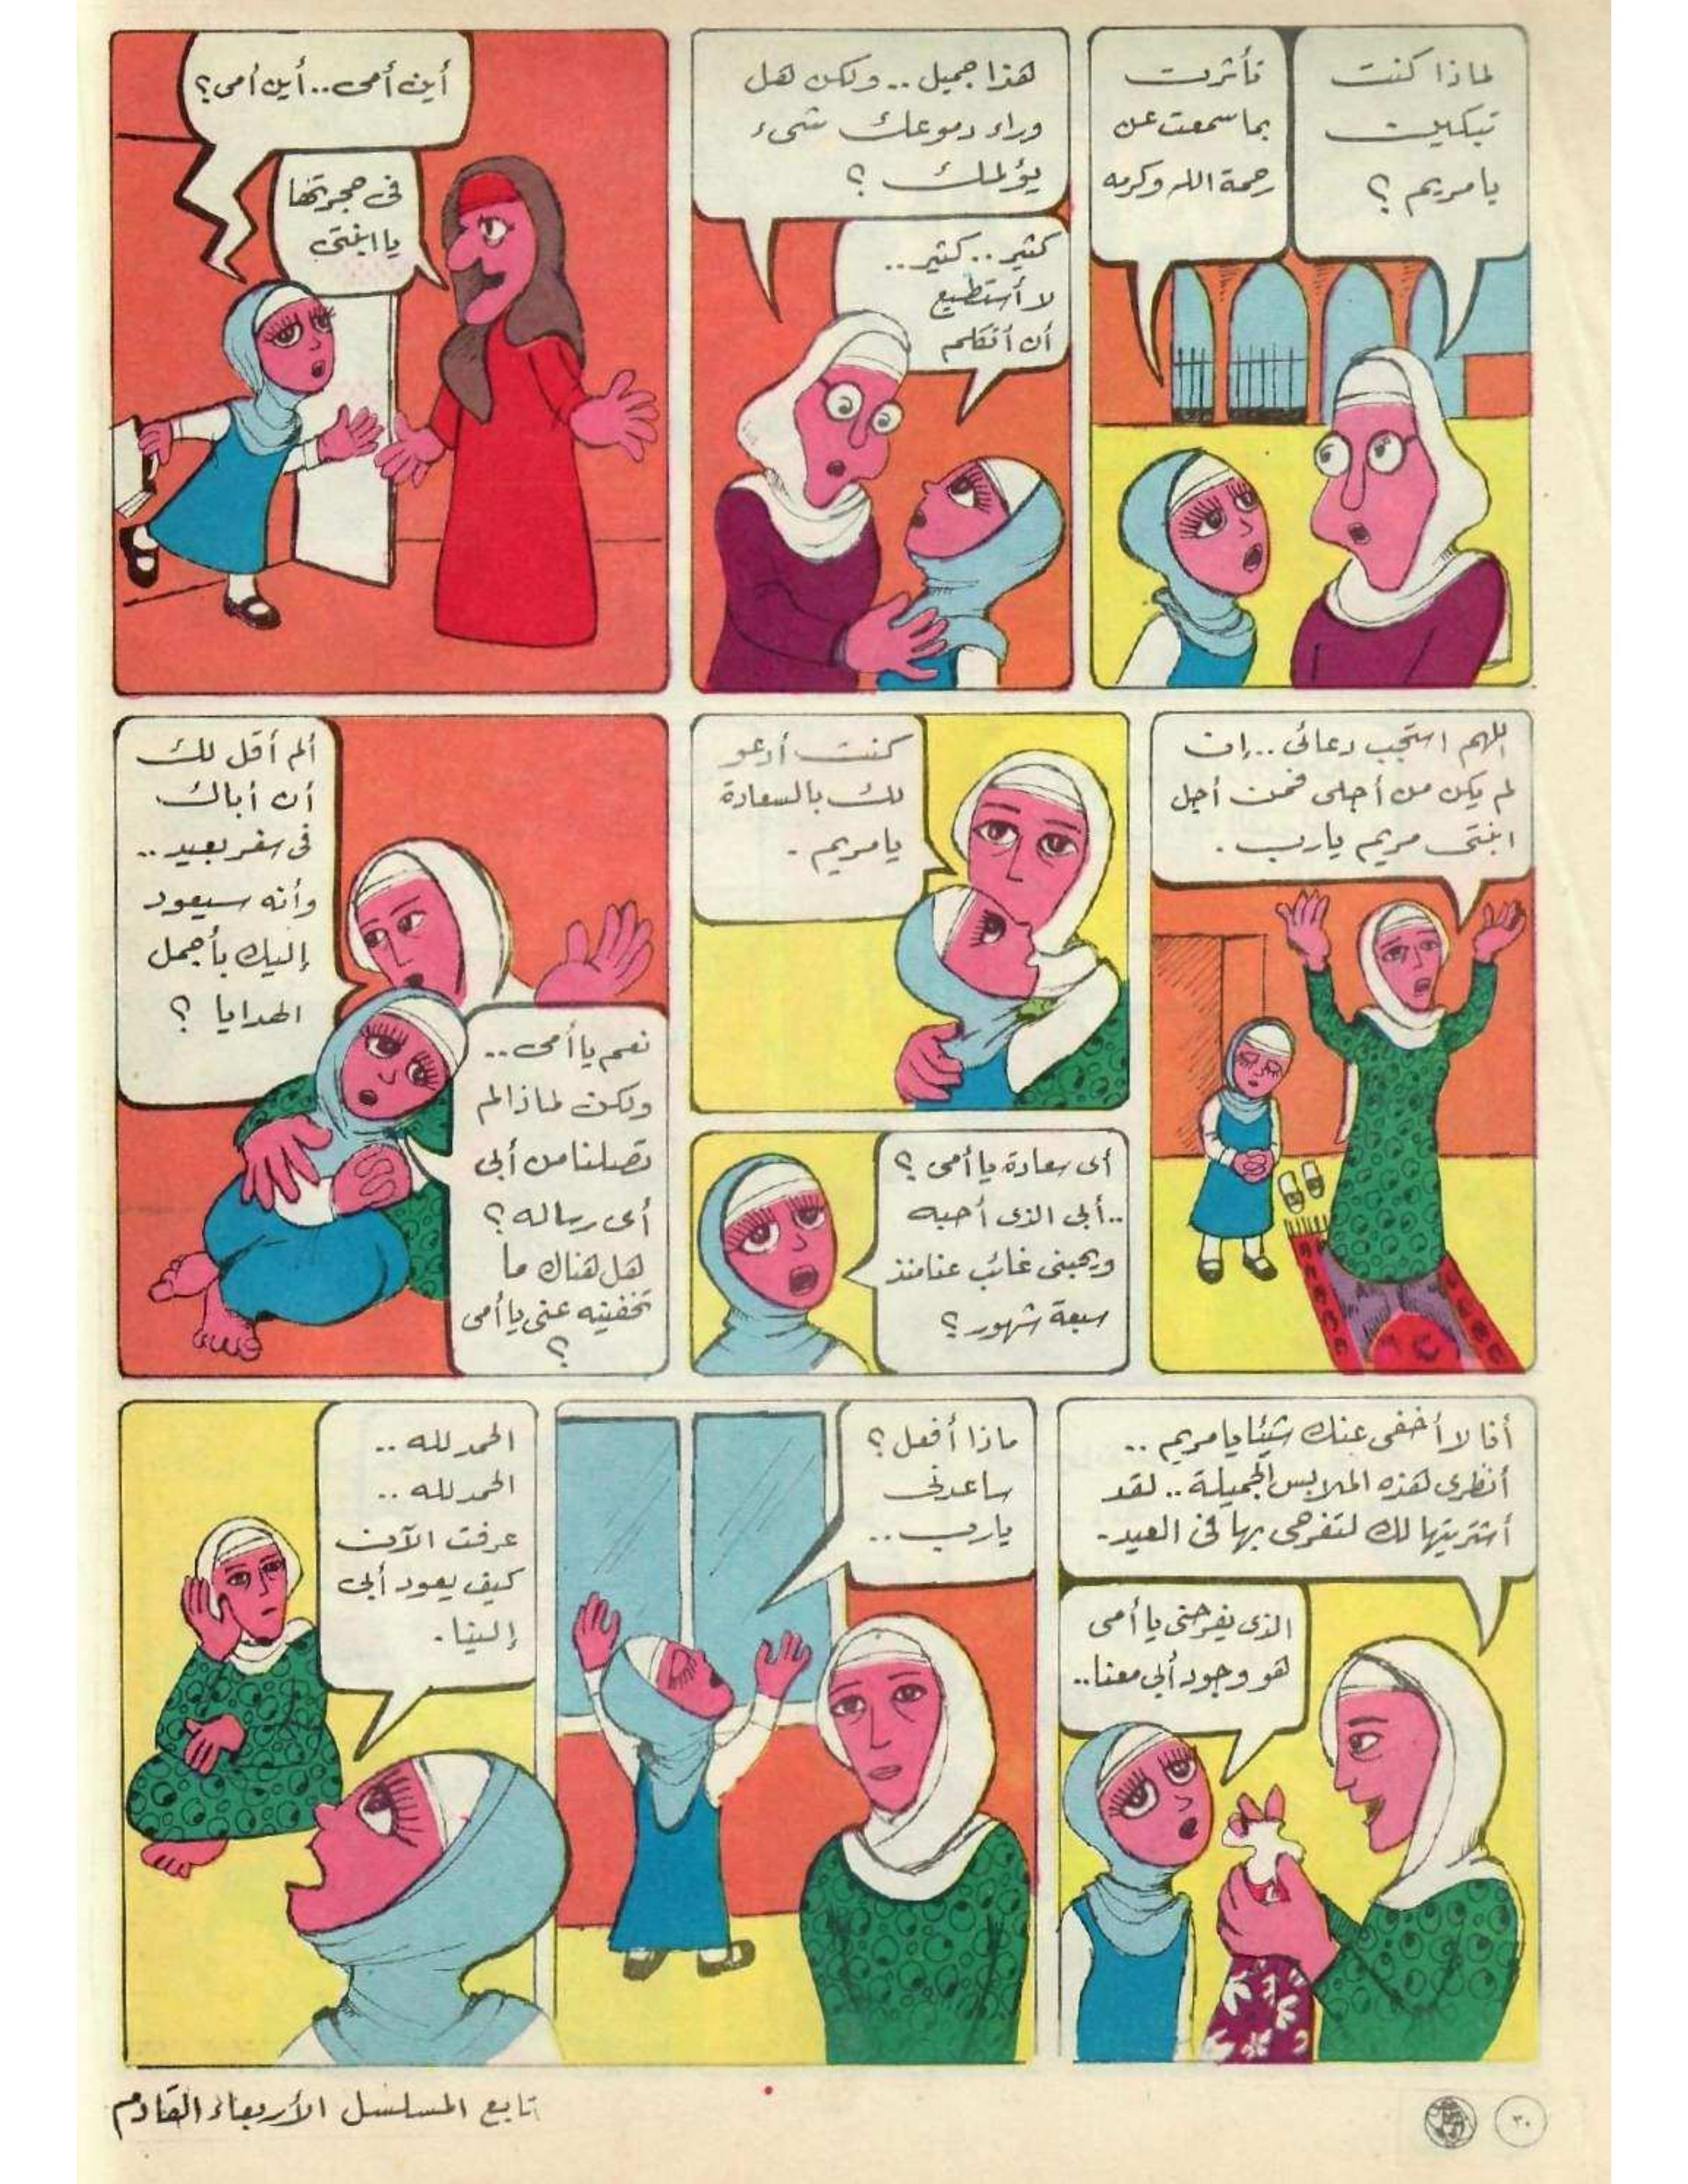 لماذا كنت
تبكين
يا مريم ؟
تأثرت
بما سمعت عن
رحمة الله وكرمه
هذا جميل .. ولكن هل
وراء دموعك شىء
يؤلمك ؟
كثير .. كثير ..
لا أستطيع
أن أتكلم
أين أمى .. أين أمى ؟
فى حجرتها
يا ابنتى
اللهم استجب دعائى .. إن
لم يكن من أجلى فمن أجل
ابنتى مريم يارب .
كنت أدعو
لك بالسعادة
يا مريم .
أى سعادة يا أمى ؟
.. أبى الذى أحبه
ويحبنى غائب عنا منذ
سبعة شهور ؟
ألم أقل لك
أن أباك
فى سفر بعيد ..
وأنه سيعود
إليك بأجمل
الهدايا ؟
نعم يا أمى ..
ولكن لماذا لم
تصلنا من أبى
أى رساله ؟
هل هناك ما
تخفينه عنى يا أمى
؟
أنا لا أخفى عنك شيئا يا مريم ..
أنظرى لهذه الملابس الجميلة .. لقد
أشتريتها لك لتفرحى بها فى العيد .
الذى يفرحنى يا أمى
هو وجود أبى معنا ..
ماذا أفعل ؟
ساعدنى
يارب ..
الحمد لله ..
الحمد لله ..
عرفت الآن
كيف يعود أبى
إلينا .
تابع المسلسل الأربعاء القادم
٣٠